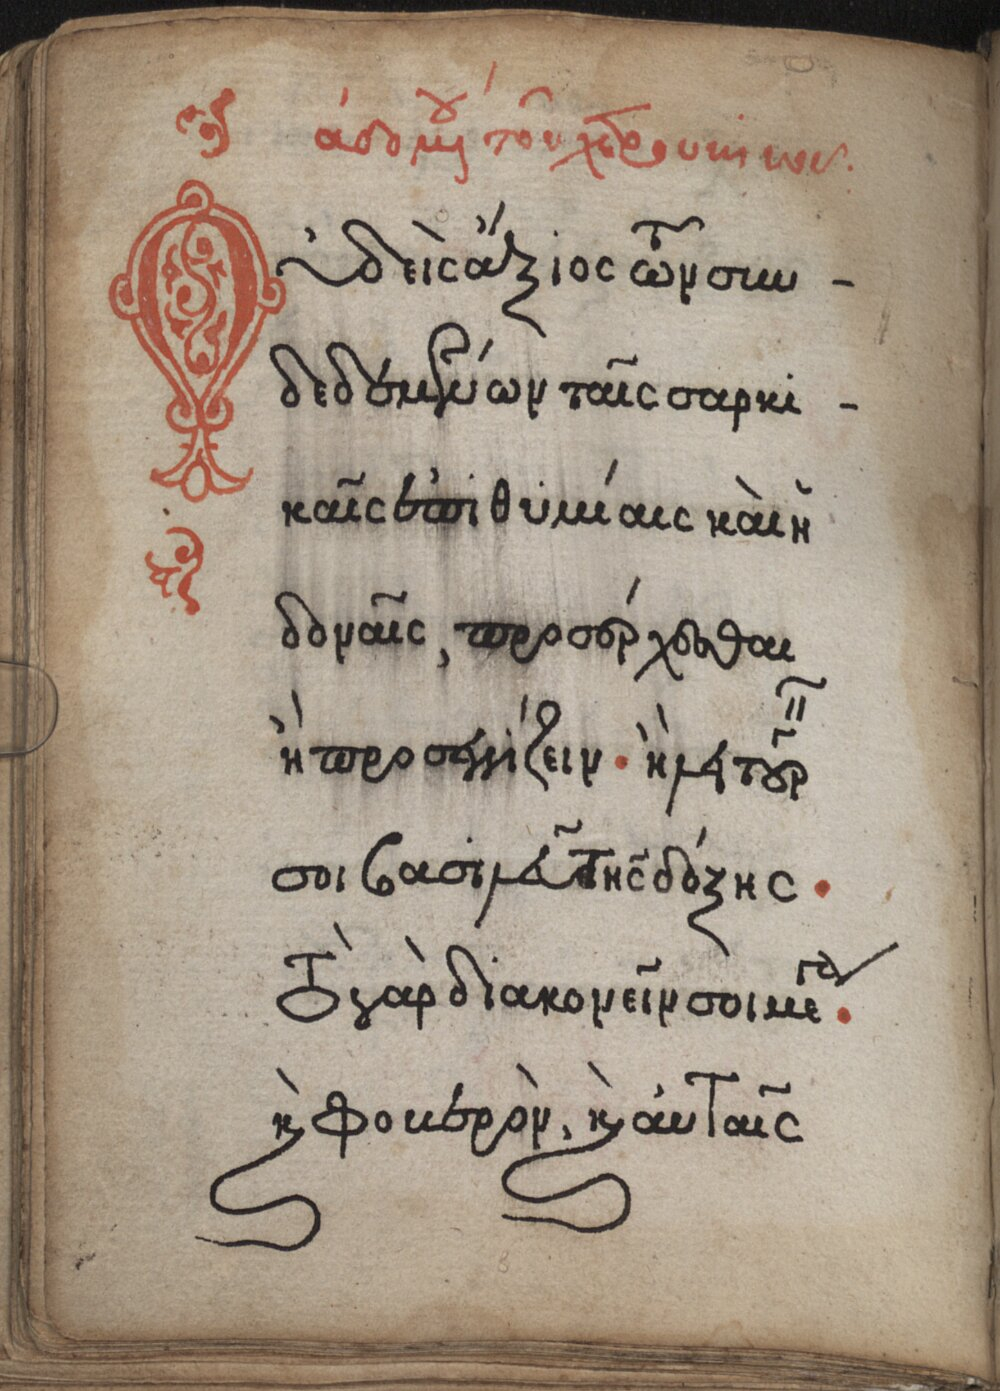 ἀδομ´ου τοῦ χερουικοῦ.
Οὐδεὶς ἄξιος τῶν συν -
δεδεμένων ταῖς σαρκι -
καῖς ἐπιθυμίαις καὶ ἡ
δοναῖς, προσέρχεσθαι
ἢ προσεγγίζειν · ἢ λειτουργ
σοι βασιλεῦ τῆς δόξης ·
Τὸ γὰρ διακονεῖν σοι μέγα ·
κ φοβερὸν, κ αὐταῖς